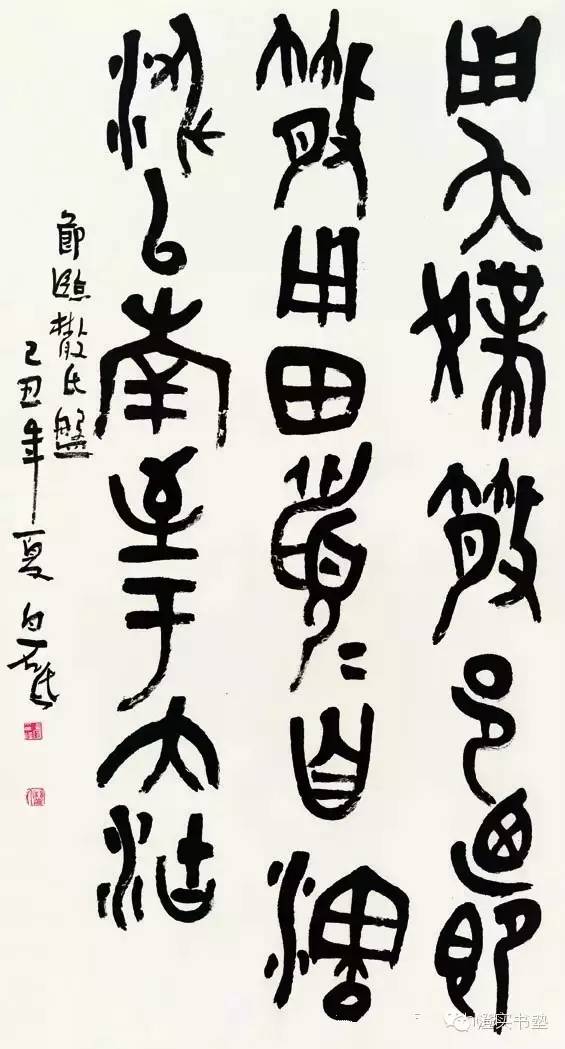 用夨撲散邑迺即
散用田眉=自瀗
涉以南至于大沽
節臨散氏盤
己丑年夏 白砥
实书塾